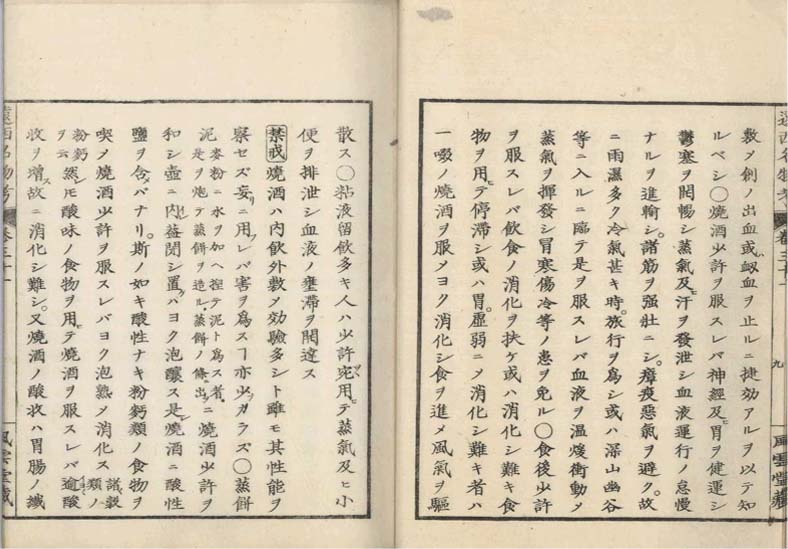 敷メ創ノ出血或衂血ヲ止ルニ捷効アルヲ以テ知
ルベシ〇燒酒少許ヲ服スレバ神經及ヒ胃ヲ健運シ
鬱塞ヲ開暢シ蒸氣及ヒ汗ヲ發泄シ血液運行ノ怠慢
ナルヲ進輸シ。諸筋ヲ强壮ニシ。瘴疫惡氣ヲ避ク。故
ニ雨濕多ク冷氣甚キ時。旅行ヲ爲シ或ハ深山幽谷
等ニ入ルニ臨テ是ヲ服スレバ血液ヲ温煖衝動メ
蒸氣ヲ揮發シ冒寒傷冷等ノ患ヲ免ル〇食後少許
ヲ服スレバ飲食ノ消化ヲ扶ケ或ハ消化シ難キ食
物ヲ用テ停滯シ或ハ胃。虛弱ニメ消化シ難キ者ハ
一啜ノ燒酒ヲ服メヨク消化シ食ヲ進メ風氣ヲ驅
遠西名物考
卷三十一
九
風雲堂藏
散ス〇粘液留飲多キ人ハ少許宛用テ蒸氣及ヒ小
便ヲ排泄シ血液ノ壅滯ヲ開達ス
禁戒 燒酒ハ内飲外敷メ効驗多シト雖モ其性能ヲ
察セズ妄リニ用フレバ害ヲ爲スヿ亦少カラズ〇蒸餅
麥粉ニ水ヲ加ヘ揑テ泥ト爲ス者。
泥 是ヲ炮テ蒸餅ヲ造ル。蒸餅ノ條ニ出ツ ニ燒酒少許ヲ
和シ壺ニ内レ葢閉シ置ケハヨク泡釀ス是レ燒酒ニ酸性
鹽ヲ含バナリ。斯ノ如キ酸性ナキ粉麪類ノ食物ヲ
喫メ燒酒少許ヲ服スレバヨク泡熟メ消化ス 諸穀類ノ
粉麪ヲ云 然レモ酸味ノ食物ヲ用テ燒酒ヲ服スレバ逾酸
收ヲ增ス故ニ消化シ難シ。又燒酒ノ酸收ハ胃腸ノ纖
遠西名物考
卷三十一
風雲堂藏